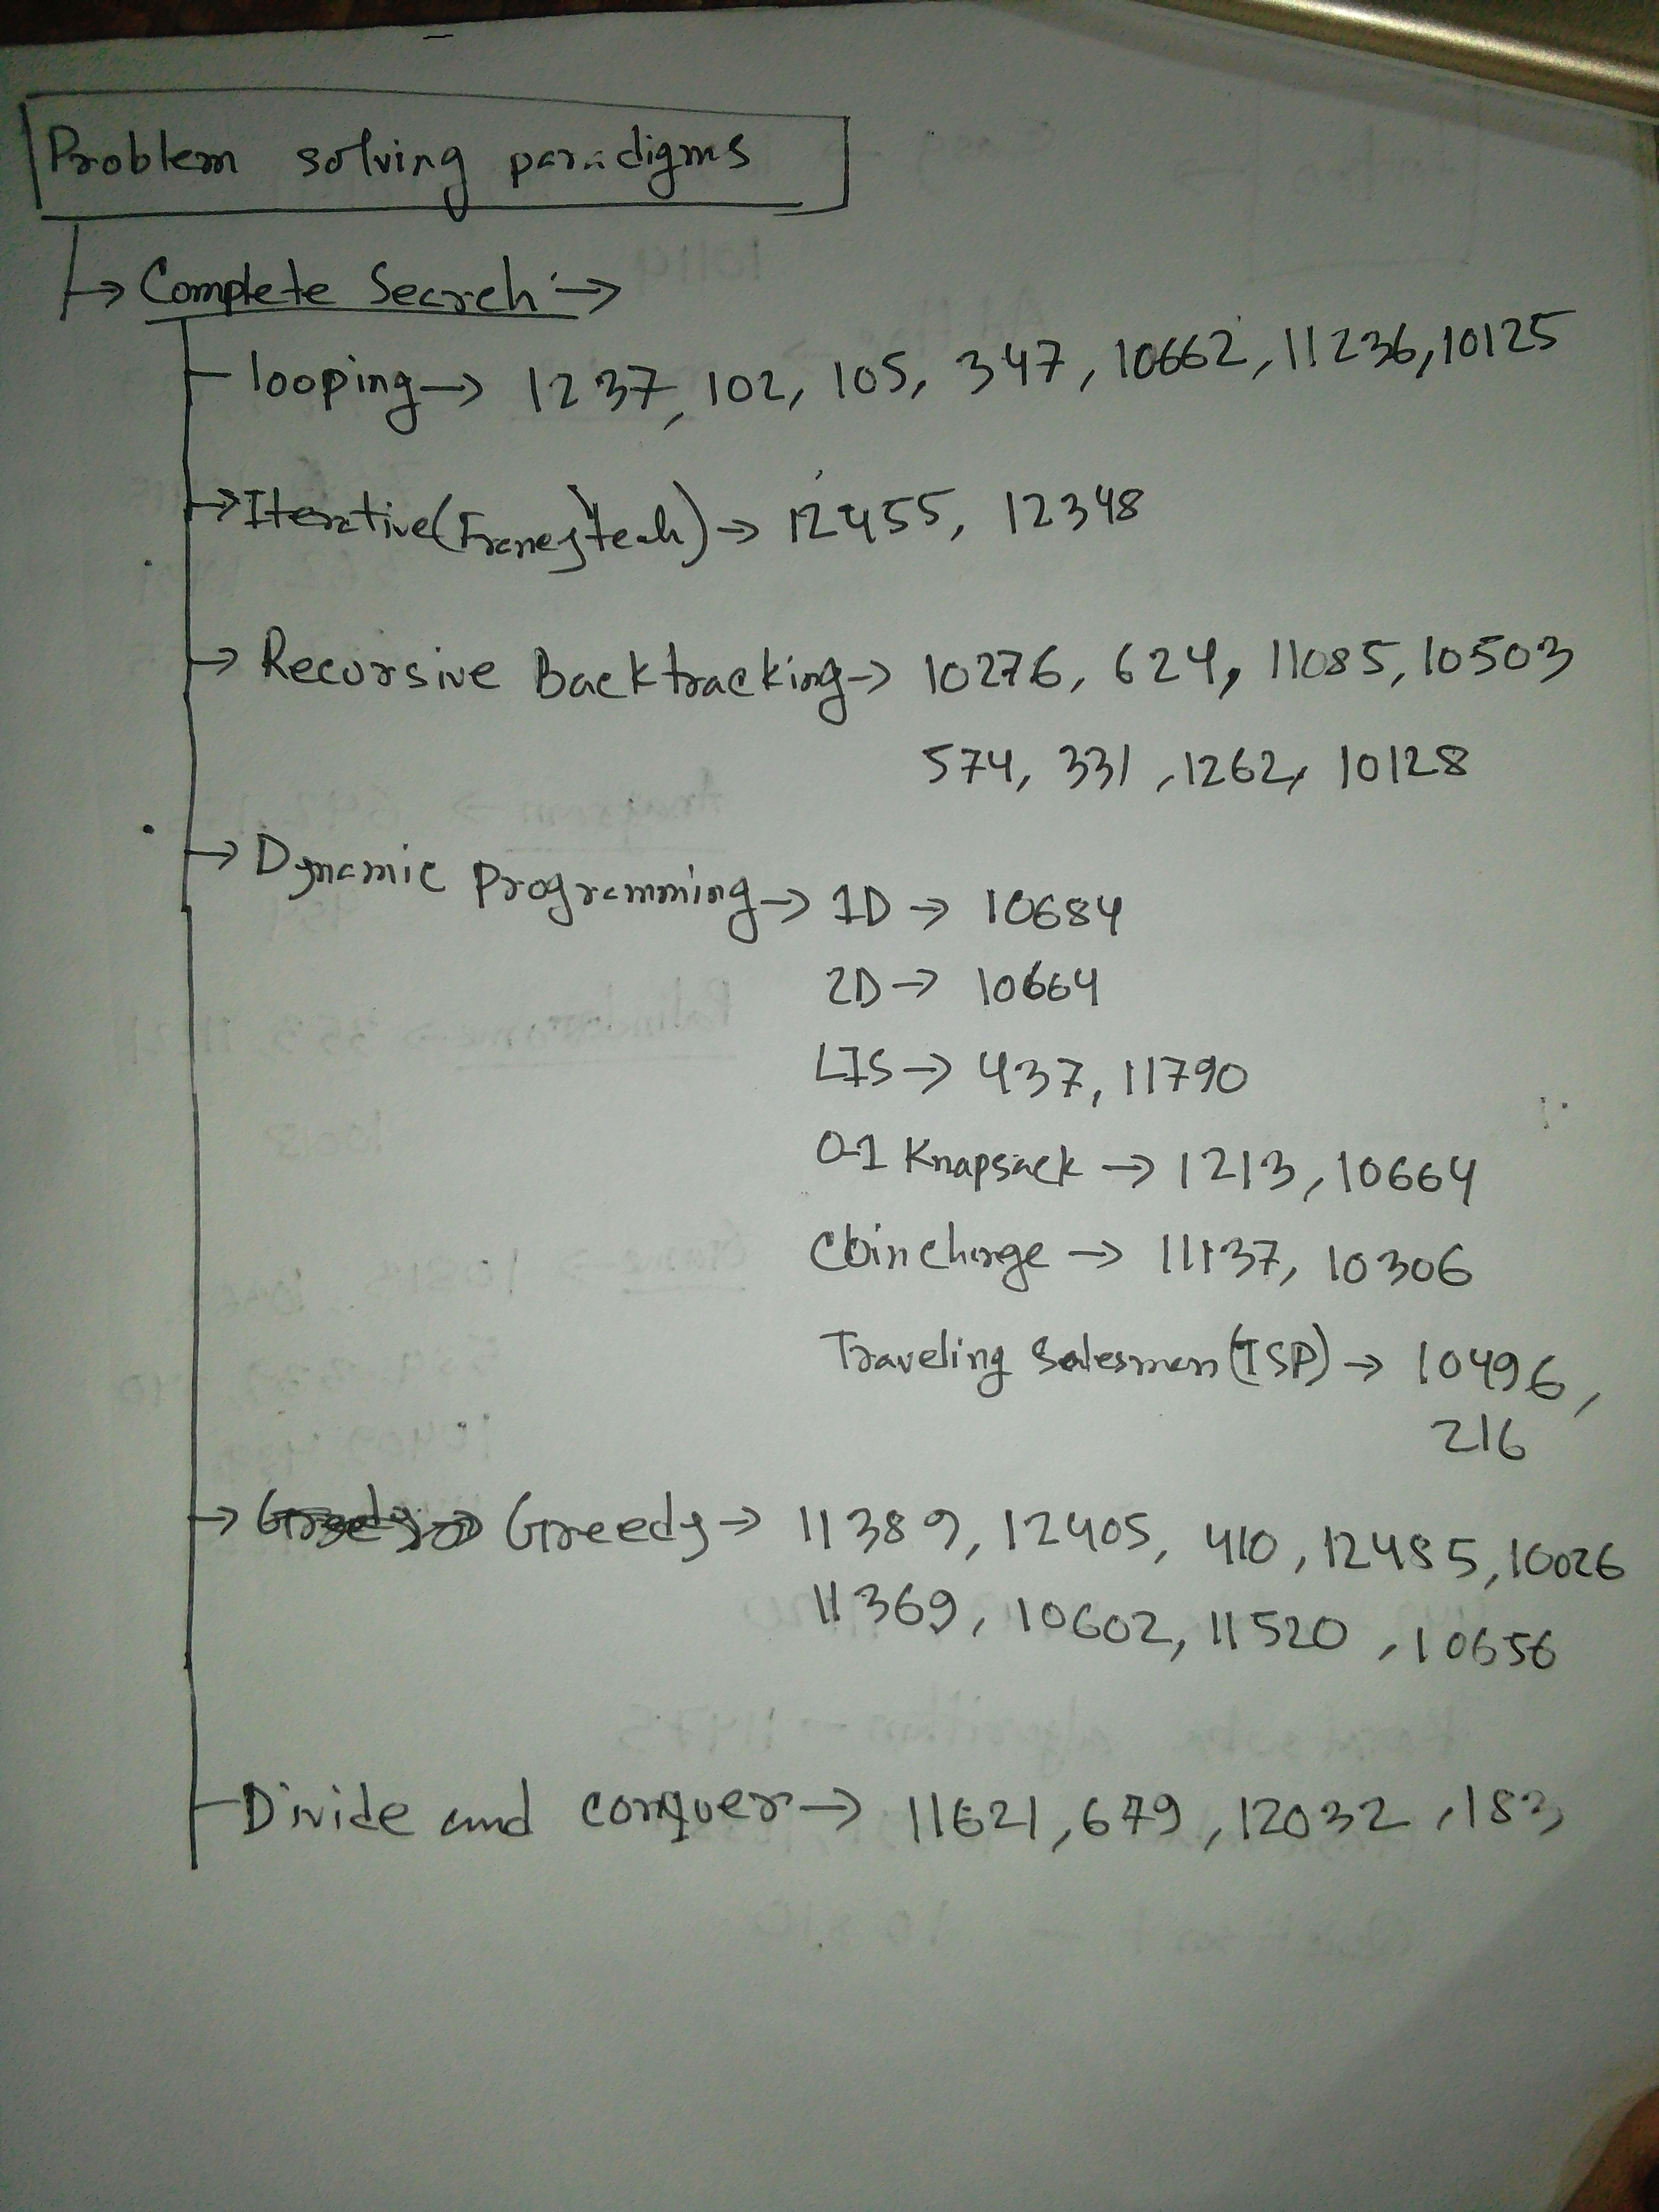 Problem solving paradigms
→ Complete Search →
looping → 1237, 102, 105, 347, 10662, 11236, 10125
→ Iterative (Fancy Tech) → 12455, 12348
→ Recursive Backtracking → 10276, 624, 11085, 10503
574, 331, 1262, 10128
→ Dynamic Programming → 1D → 10684
2D → 10664
LIS → 437, 11790
0-1 Knapsack → 1213, 10664
Coin change → 11137, 10306
Traveling Salesman (TSP) → 10496,
216
→ Greedy → 11389, 12405, 410, 12485, 10026
11369, 10602, 11520, 10656
Divide and conquer → 11621, 679, 12032, 183